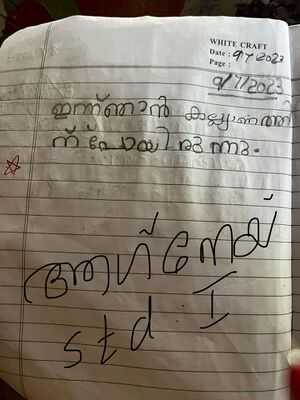 WHITE CRAFT
Date : 9/7/2023
Page :
9/7/2023
ഇന്ന് ഞാൻ കല്ല്യാണത്തി
ന് പോയിരുന്നു.
ആഗ്നേയ്
std I